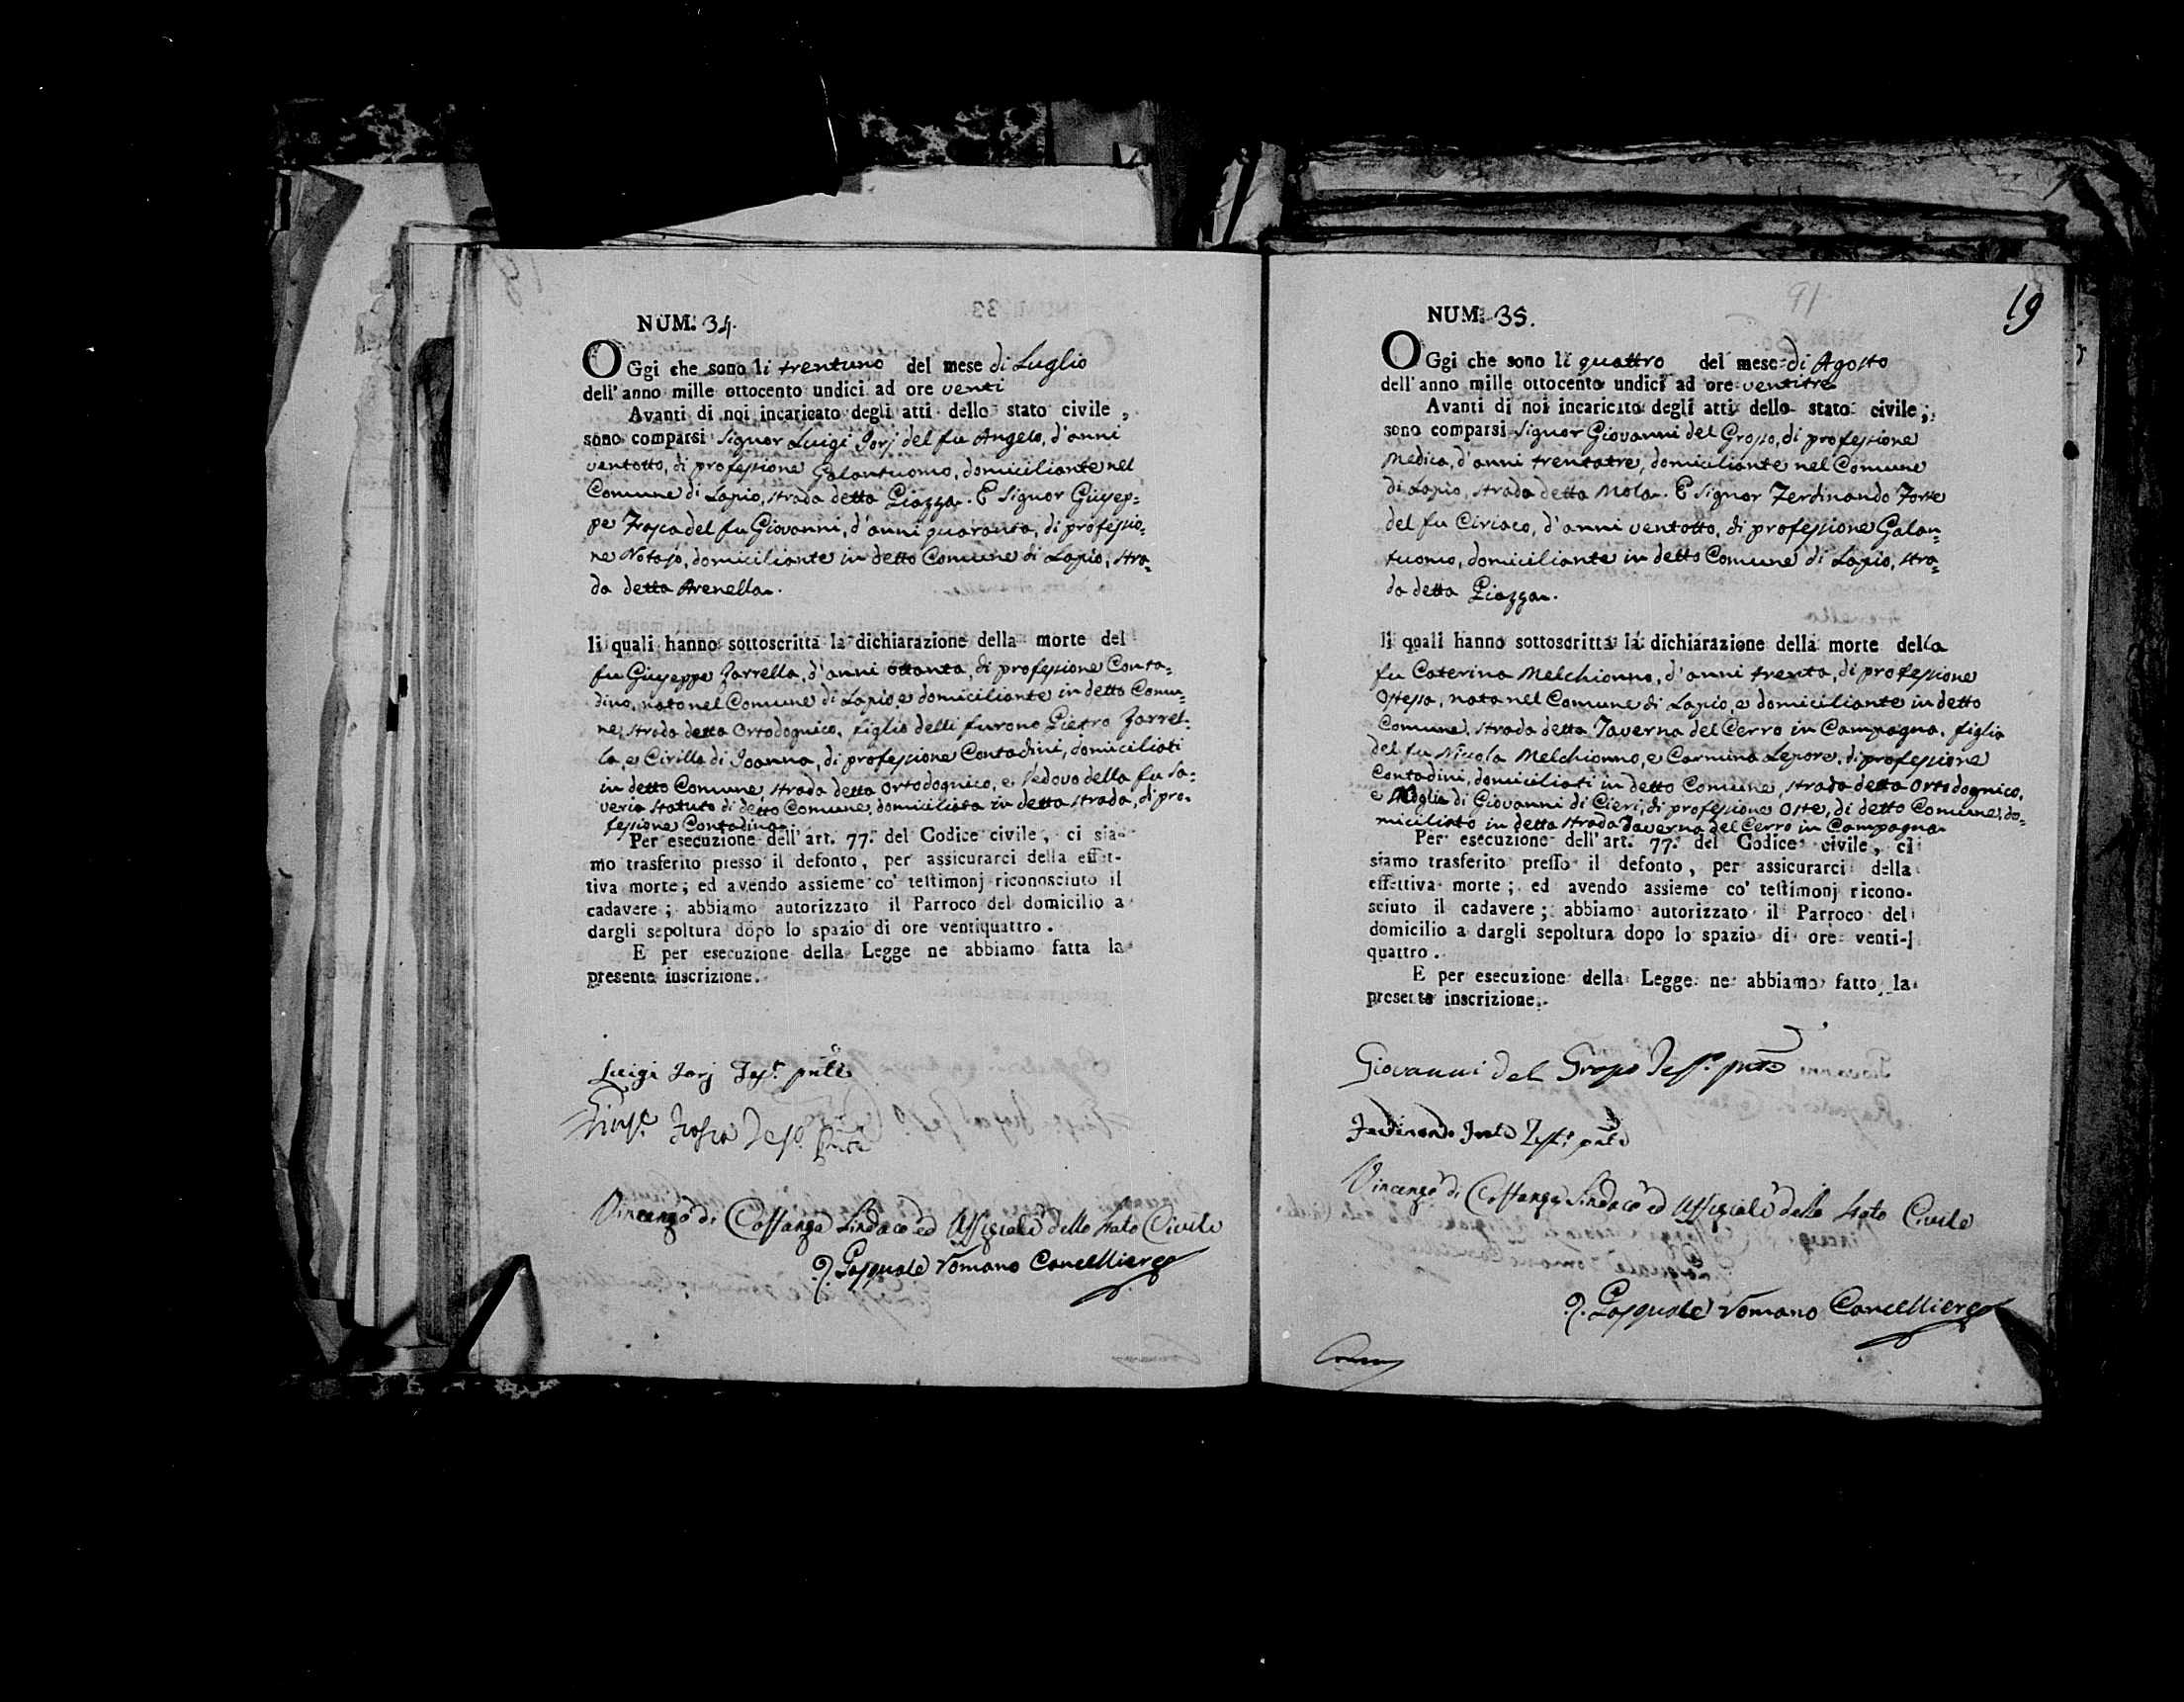 NUM. 34.
OGgi che sono li trentuno del mese di Luglio
dell' anno mille ottocento undici ad ore venti
Avanti di noi incaricato degli atti dello stato civile,
sono comparsi Signor Luigi Jorj del fu Angelo, d'anni
ventotto, di professione Galantuomo, domiciliante nel
Comune di Lapio, strada detta Piazza. E Signor Giusep=
pe Trosca del fu Giovanni, d'anni quaranta, di professio=
ne Notajo, domiciliante in detto Comune di Lapio, stra=
da detta Arenella.
li quali hanno sottoscritta la dichiarazione della morte del
fu Giuseppe Zarrella, d'anni ottanta, di professione Conta=
dino, nato nel Comune di Lapio, e domiciliante in detto Comu=
ne, strada detta Ortodognico, figlio delli furono Pietro Zarrel=
la, e Cirilla di Joanna, di professione Contadini, domiciliati
in detto Comune, strada detta Ortodognico, e Vedovo della fu Sa=
veria Statuto di detto Comune, domiciliata in detta strada, di pro=
fessione Contadina.
Per esecuzione dell' art. 77. del Codice civile, ci sia-
mo trasferito presso il defonto, per assicurarci della effet-
tiva morte; ed avendo assieme co' testimonj riconosciuto il
cadavere; abbiamo autorizzato il Parroco del domicilio a
dargli sepoltura dopo lo spazio di ore ventiquattro.
E per esecuzione della Legge ne abbiamo fatta la
presente inscrizione.
Luigi Jorj Tes.º pnte
Gius.e Trosca Tes.º pnte
Vincenzo di Costanza Sindaco ed Uffiziale dello Stato Civile
P. Pasquale Romano Cancelliere
91
19
NUM. 35.
OGgi che sono li quattro del mese di Agosto
dell' anno mille ottocento undici ad ore ventitre
Avanti di noi incaricato degli atti dello stato civile;
sono comparsi Signor Giovanni del Grosso, di professione
Medico, d'anni trentatre, domiciliante nel Comune
di Lapio, strada detta Mola. E Signor Ferdinando Forte
del fu Ciriaco, d'anni ventotto, di professione Galan=
tuomo, domiciliante in detto Comune di Lapio, stra=
da detta Piazza.
li quali hanno sottoscritta la dichiarazione della morte della
fu Caterina Melchionno, d'anni trenta, di professione
Ostessa, nata nel Comune di Lapio, e domiciliante in detto
Comune, strada detta Taverna del Cerro in Campagna, figlia
del fu Niccola Melchionno, e Carmina Lepore, di professione
Contadini, domiciliati in detto Comune, strada detta Ortodognico,
e Moglie di Giovanni di Cieri, di professione Oste, di detto Comune, do=
miciliato in detta strada Taverna del Cerro in Campagna
Per esecuzione dell' art. 77. del Codice civile, ci
siamo trasferito presso il defonto, per assicurarci della
effettiva morte; ed avendo assieme co' testimonj ricono-
sciuto il cadavere; abbiamo autorizzato il Parroco del
domicilio a dargli sepoltura dopo lo spazio di ore venti-
quattro.
E per esecuzione della Legge ne abbiamo fatto la
presente inscrizione.
Giovanni del Grosso Tes.º pnte
Ferdinando Forte Test.º pnte
Vincenzo di Costanza Sindaco ed Uffiziale dello Stato Civile
P. Pasquale Romano Cancelliere